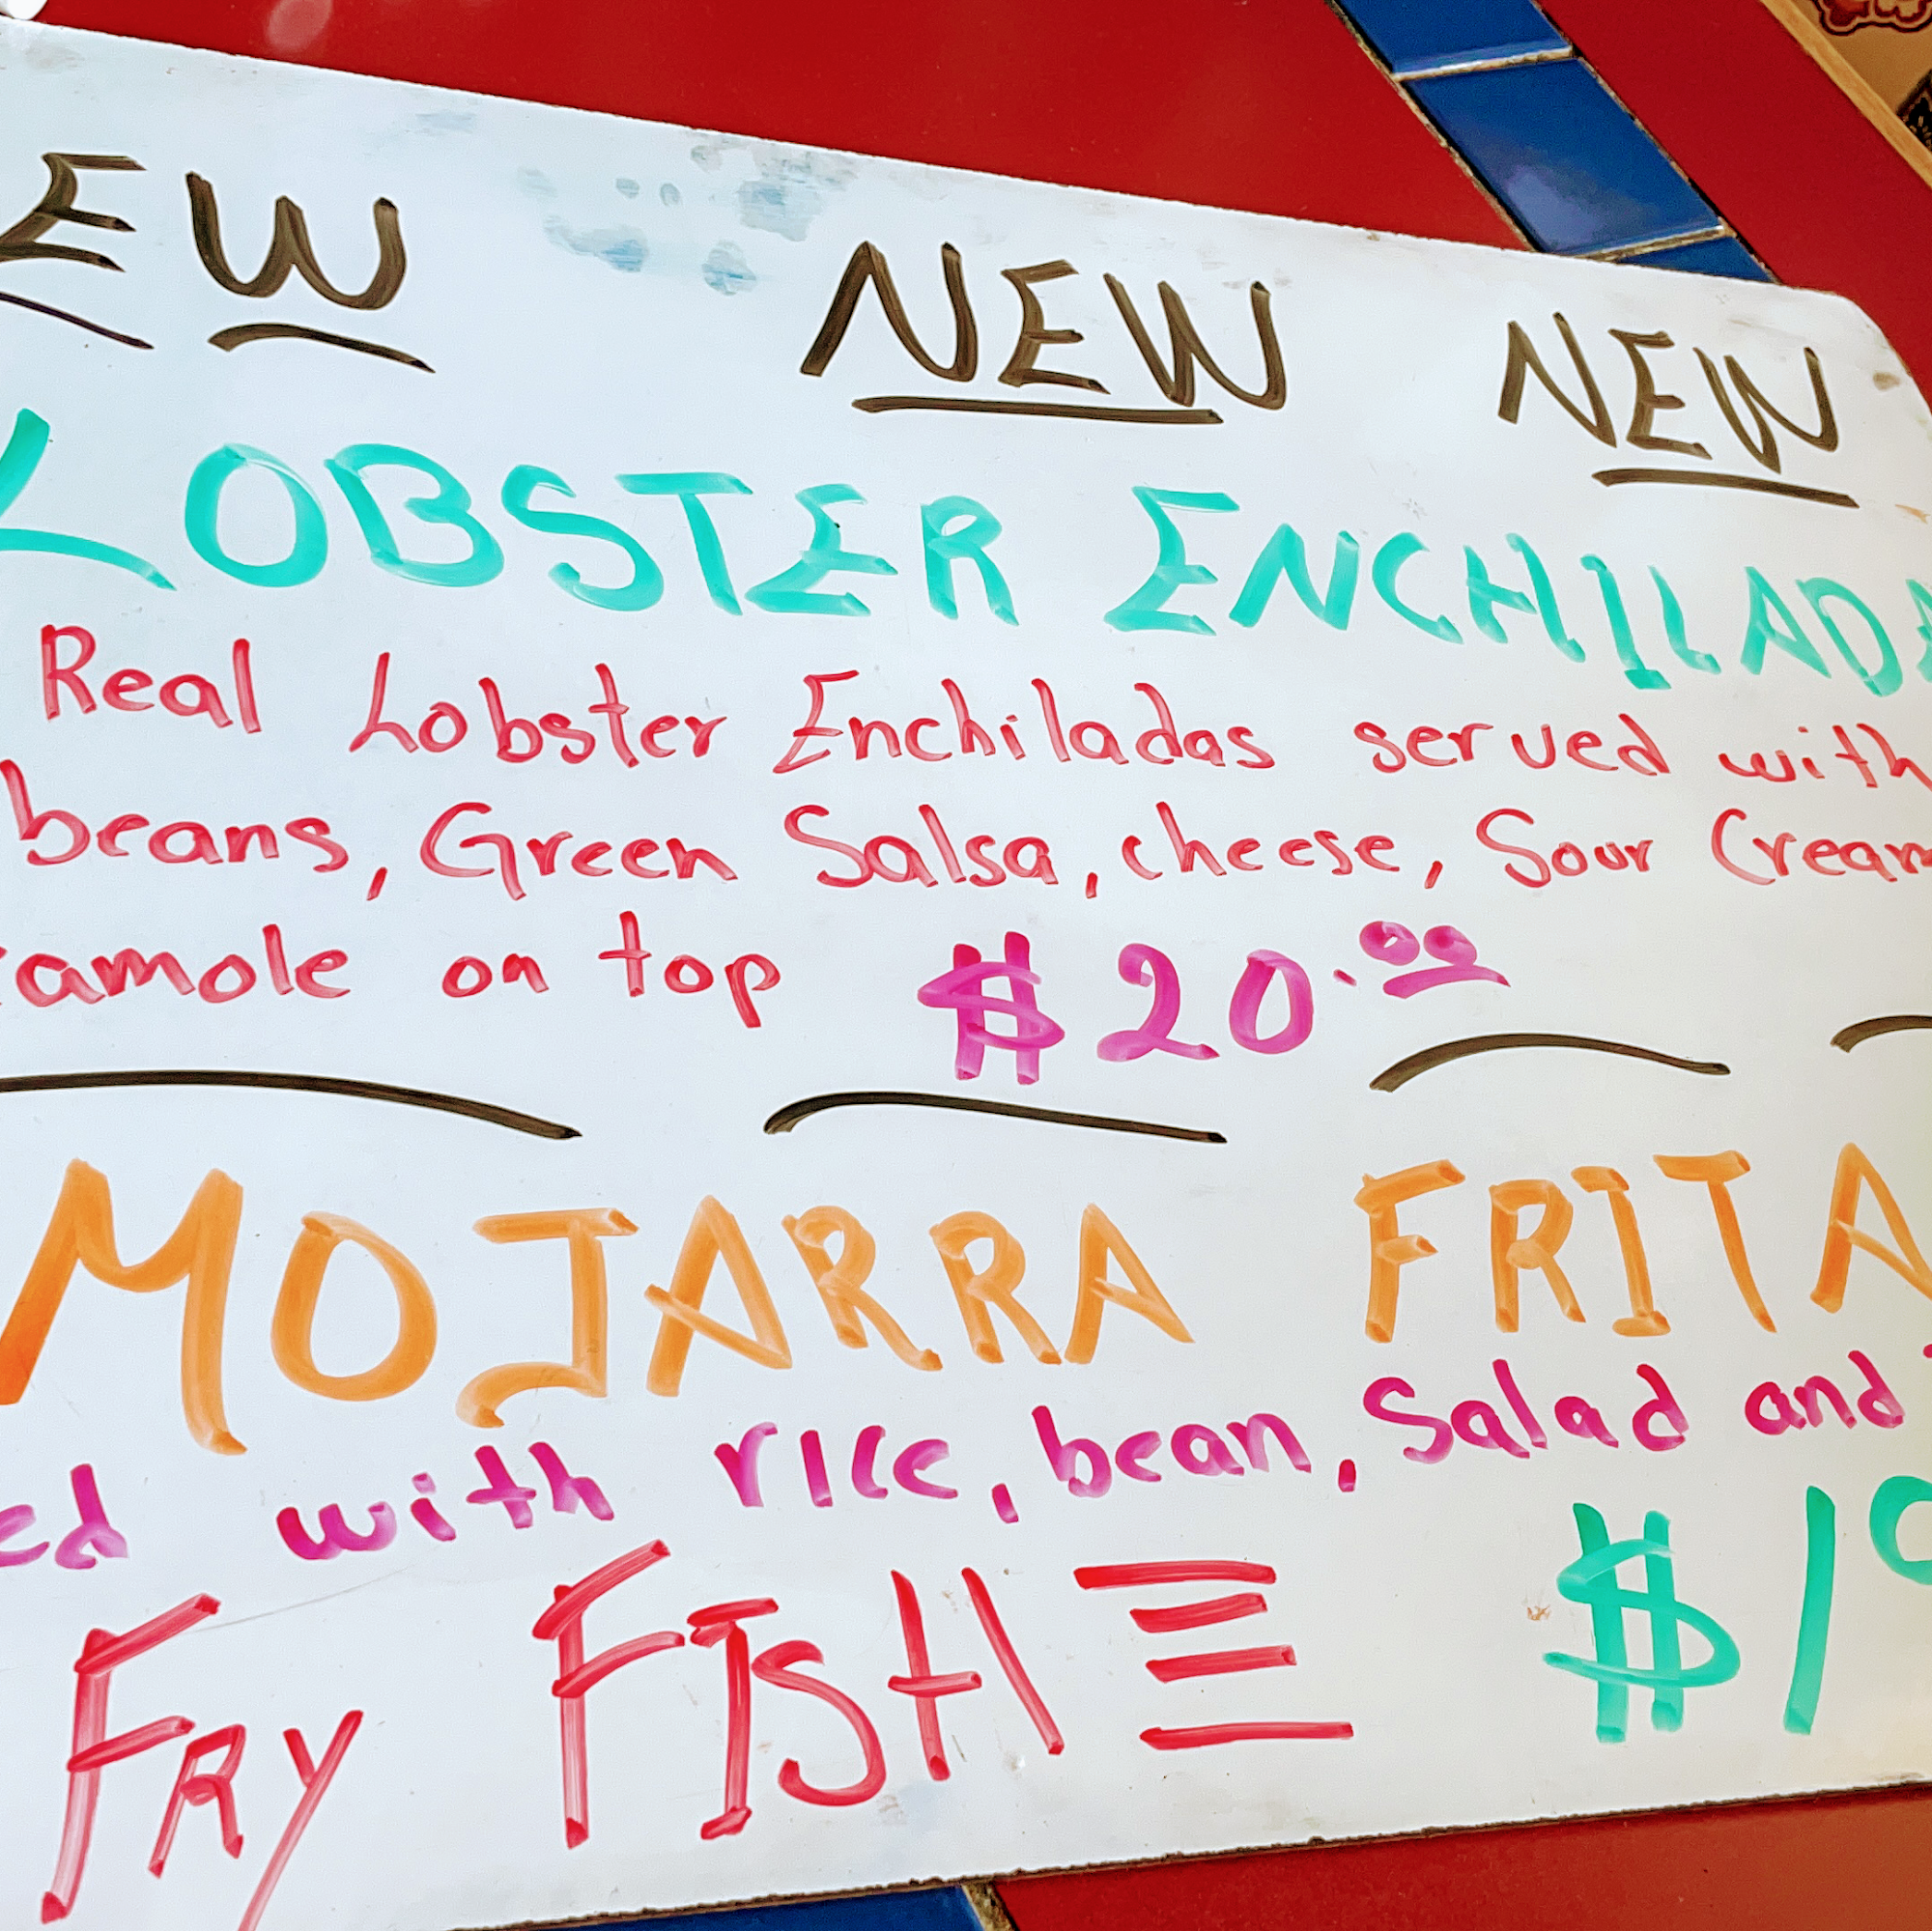 EW NEW NEW
LOBSTER ENCHILADA
Real Lobster Enchiladas served with
beans, Green Salsa, cheese, Sour Cream
camole on top $20.00
MOJARRA FRITA
ed with rice, bean, Salad and
FRY FISH $1